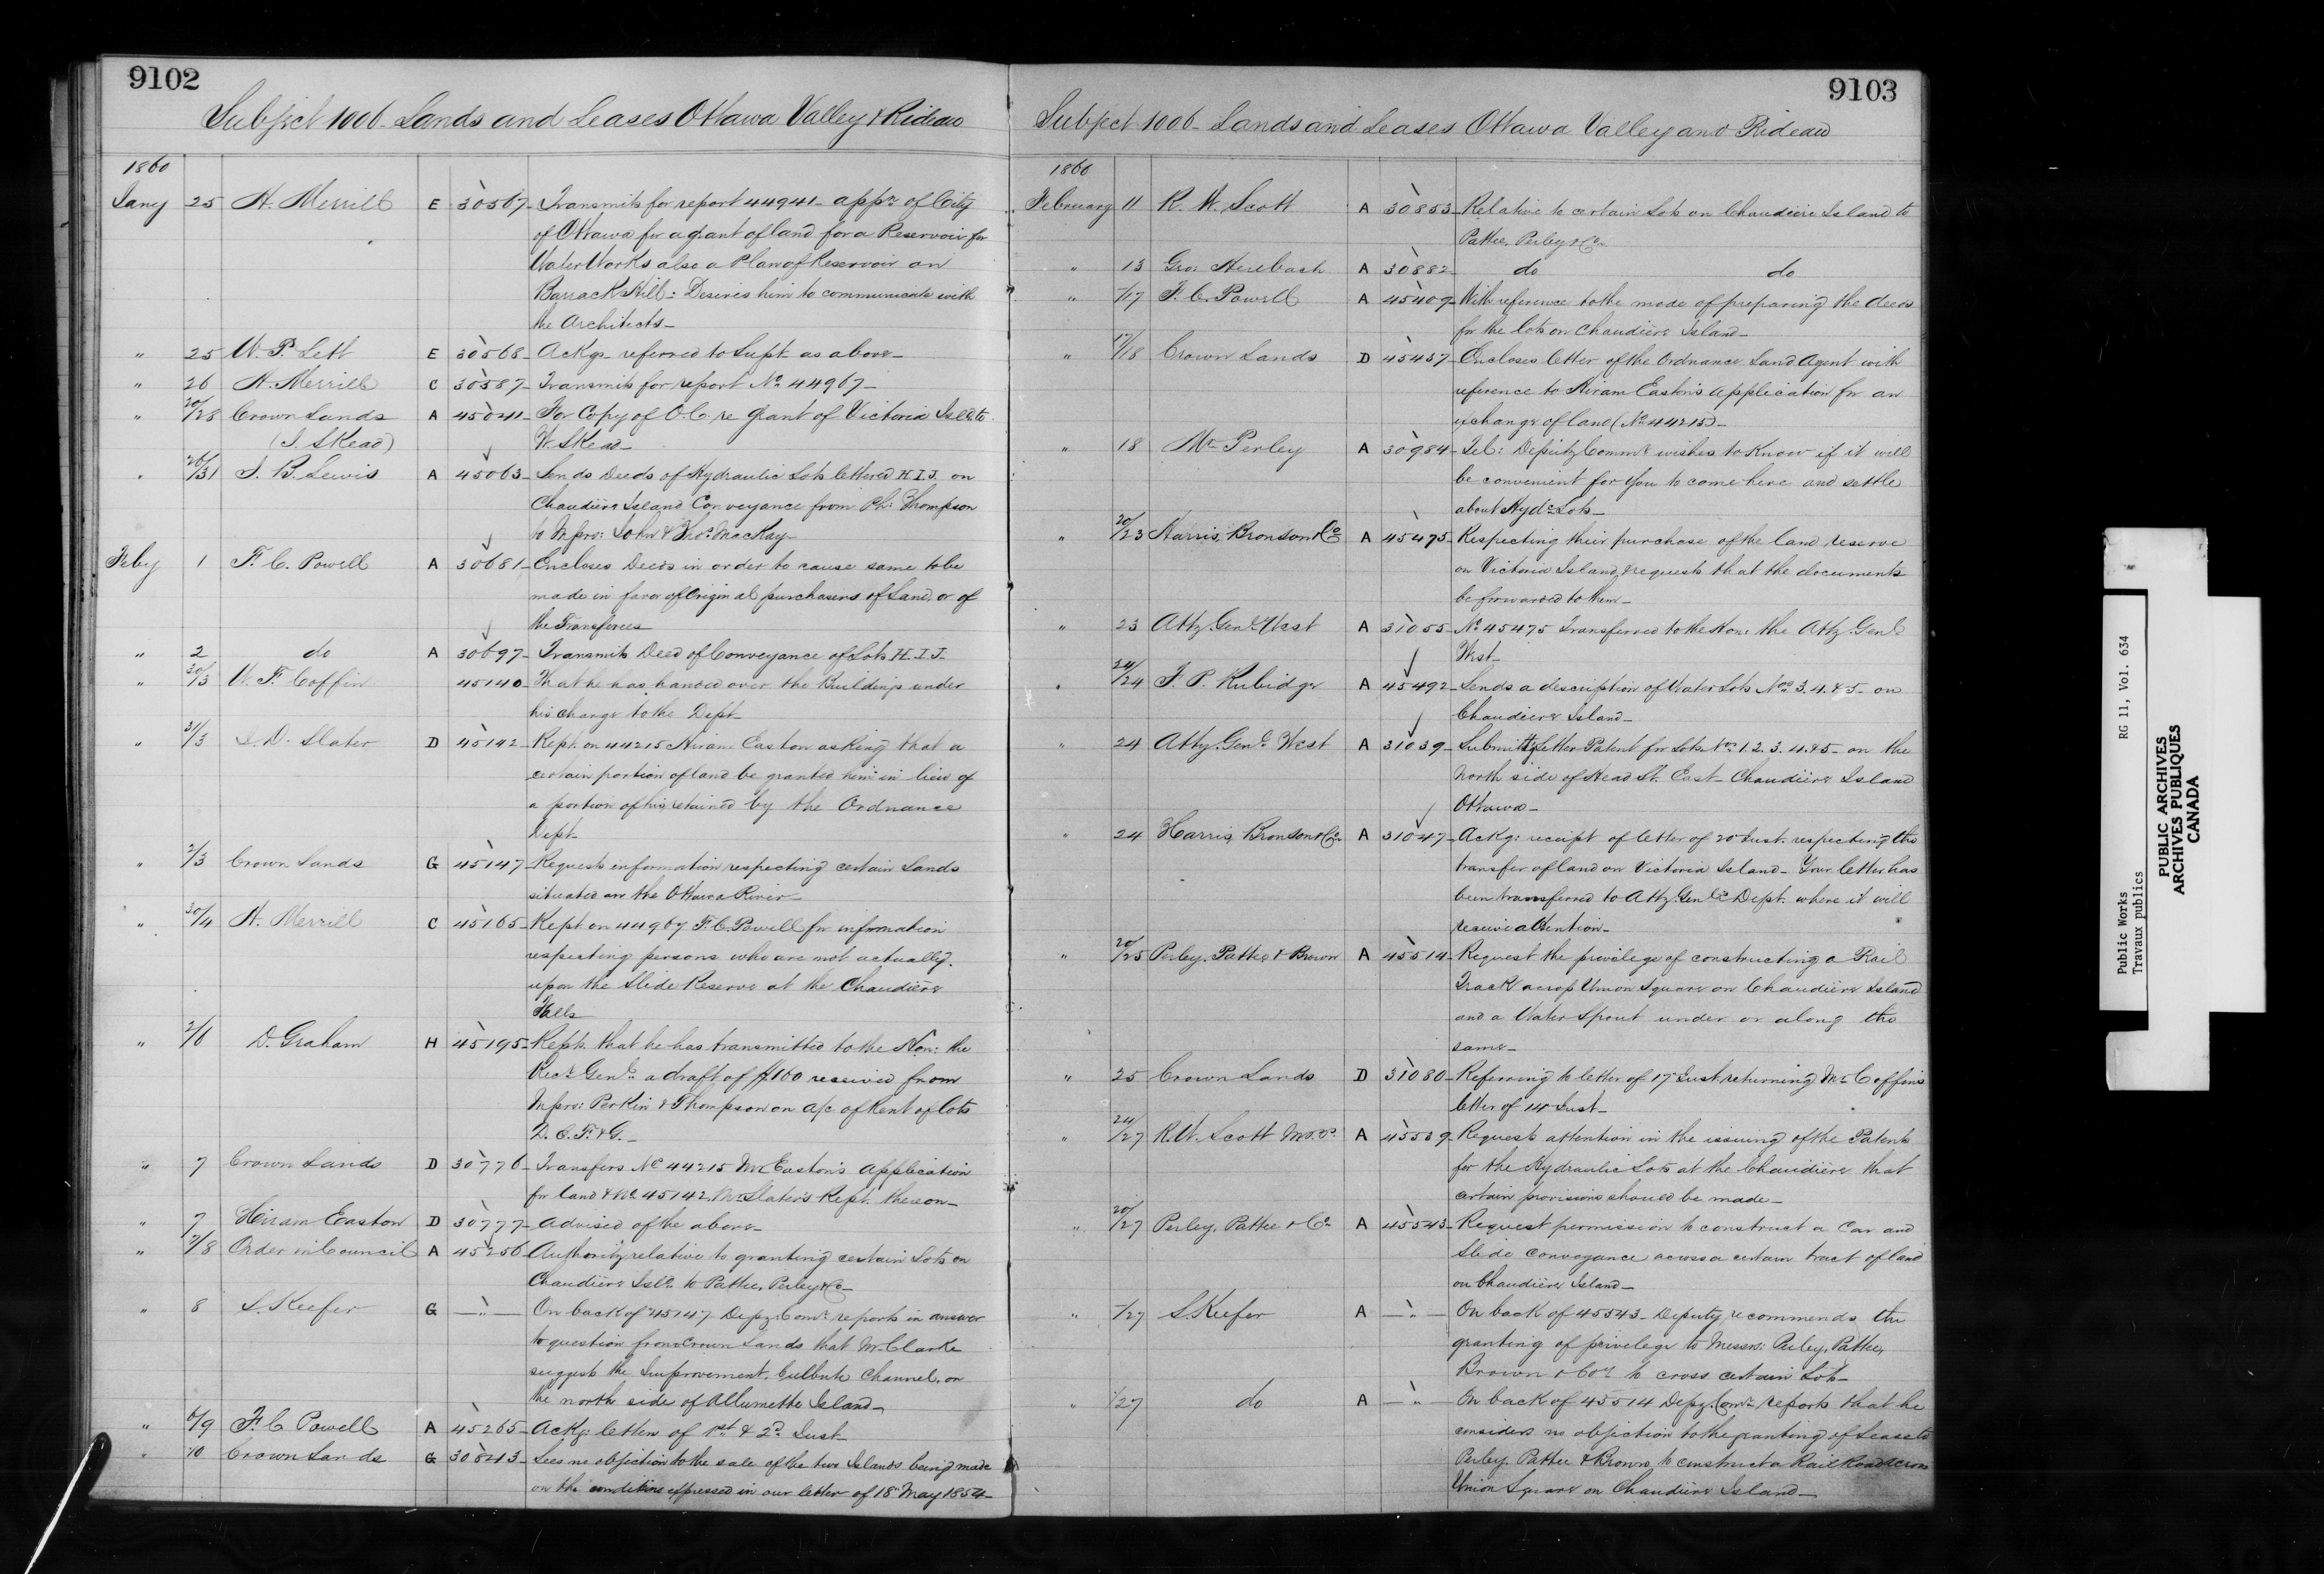 9102
Subject 1006 - Lands and Leases Ottawa Valley & Rideau
1860
Jany 25 H. Merrill E 30567 - Transmits for report 44941 - appn of City
of Ottawa for a grant of land for a Reservoir for
Water Works also a Plan of Reservoir on
Barrack Hill: Desires him to communicate with
the Architects -
" 25 W. P. Lett E 30568 - Ackgs - referred to Supt as above -
" 26 H. Merrill C 30587 - Transmits for report No 44967 -
" 20/28 Crown Lands A 45041 - For Copy of O.C. re grant of Victoria Isld to
(J. Skead) W. Skead -
" 26/31 J. B. Lewis A 45063 - Sends Deeds of Hydraulic Lots lettered H.I.J. on
Chaudière Island Conveyance from Ph: Thompson
to Messrs: John & Thos MacKay -
Feby 1 F. C. Powell A 30681 - Encloses Deeds in order to cause same to be
made in favor of Original purchasers of Land, or of
the Transferees
" 2 do A 30697 - Transmits Deed of Conveyance of Lots H.I.J.
" 30/3 W. F. Coffin 45140 - That he has handed over the Buildings under
his charge to the Dept -
" 31/3 J. D. Slater D 45142 - Rept. on 44215 Hiram Easton asking that a
certain portion of land be granted him in lieu of
a portion of his retained by the Ordnance
Dept -
" 2/3 Crown Lands G 45147 - Requests information respecting certain Lands
situated on the Ottawa River -
" 30/4 H. Merrill C 45165 - Rept. on 44967 F. C. Powell for information
respecting persons who are not actually
upon the Slide Reserve at the Chaudière
Falls
" 2/6 D. Graham H 45195 - Repts. that he has transmitted to the Hon: the
Recr Genl: a draft of $160 received from
Messrs: Perkin & Thompson on a/c of Rent of lots
D. E. F. & G. -
" 7 Crown Lands D 30776 - Transfers No 44215 Mr Easton's Application
for land & No 45142 Mr Slater's Rept. thereon -
" 7 Hiram Easton D 30777 - Advised of the above -
" 7/8 Order in Council A 45256 - Authority relative to granting certain Lots on
Chaudière Isld. to Pattee, Perley & Co -
" 8 S. Keefer G — " — On back of 45147 Depy. Comr. reports in answer
to question from Crown Lands that Mr. Clarke
suggests the Improvement, Culbute Channel, on
the north side of Allumette Island -
" 6/9 F. C. Powell A 45265 - Ackg: letters of 1st & 2d Inst -
" 10 Crown Lands G 30843 - Sees no objection to the sale of the two Islands being made
on the conditions expressed in our letter of 18 May 1854 -
9103
Subject 1006 - Lands and Leases Ottawa Valley and Rideau
1860
February 11 R. W. Scott A 30853 - Relative to certain Lots on Chaudière Island to
Pattee, Perley & Co -
" 13 Geo: A 30882 - do do
" -/17 F. C. Powell A 45409 - With reference to the mode of preparing the deeds
for the lots on Chaudière Island -
" 17/18 Crown Lands D 45437 - Encloses letter of the Ordnance Land Agent with
reference to Hiram Easton's Application for an
exchange of land (No 44215) -
" 18 Mr Perley A 30984 - Tel: Deputy Commr wishes to Know if it will
be convenient for you to come here and settle
about Hydc Lots -
" 20/23 Harris, Bronson & Co A 45475 - Respecting their purchase of the land reserve
on Victoria Island, & requests that the documents
be forwarded to them -
" 23 Atty. Genl. West A 31055 - No 45475 Transferred to the Hon: the Atty. Genl
West -
" 24/24 F. P. Rubidge A 45492 - Sends a description of Water Lots Nos 3. 4. & 5 - on
Chaudière Island -
" 24 Atty. Genl. West A 31039 - Submitting Letter Patent for Lots Nos 1. 2. 3. 4. & 5 - on the
North side of Head St. East - Chaudière Island
Ottawa -
" 24 Harris, Bronson & Co A 31047 - Ackg: receipt of letter of 20 Inst. respecting the
transfer of land on Victoria Island - Your letter has
been transferred to Atty. Genl's Dept. where it will
receive attention -
" 20/25 Perley, Pattee & Brown A 45514 - Request the privilege of constructing a Rail
Track across Union Square on Chaudière Island
and a Water Spout under or along the
same -
" 25 Crown Lands D 31080 - Referring to letter of 17 Inst. returning Mr Coffin's
letter of 14 Inst -
" 24/27 R. W. Scott M.P.P. A 45539 - Requests attention in the issuing of the Patents
for the Hydraulic Lots at the Chaudière that
certain provisions should be made -
" 20/27 Perley, Pattee & Co A 45543 - Request permission to construct a Car and
Slide Conveyance across a certain tract of land
on Chaudière Island -
" -/27 S. Keefer A — " — On back of 45543 - Deputy recommends the
granting of privilege to Messrs: Perley, Pattee,
Brown & Coy to cross certain Lots -
" -/27 do A — " — On back of 45514 Depy. Comr. reports that he
considers no objection to the granting of Lease to
Perley, Pattee & Brown, to construct a Rail Road across
Union Square on Chaudière Island -
Public Works RG 11, Vol. 634
Travaux publics
PUBLIC ARCHIVES
ARCHIVES PUBLIQUES
CANADA